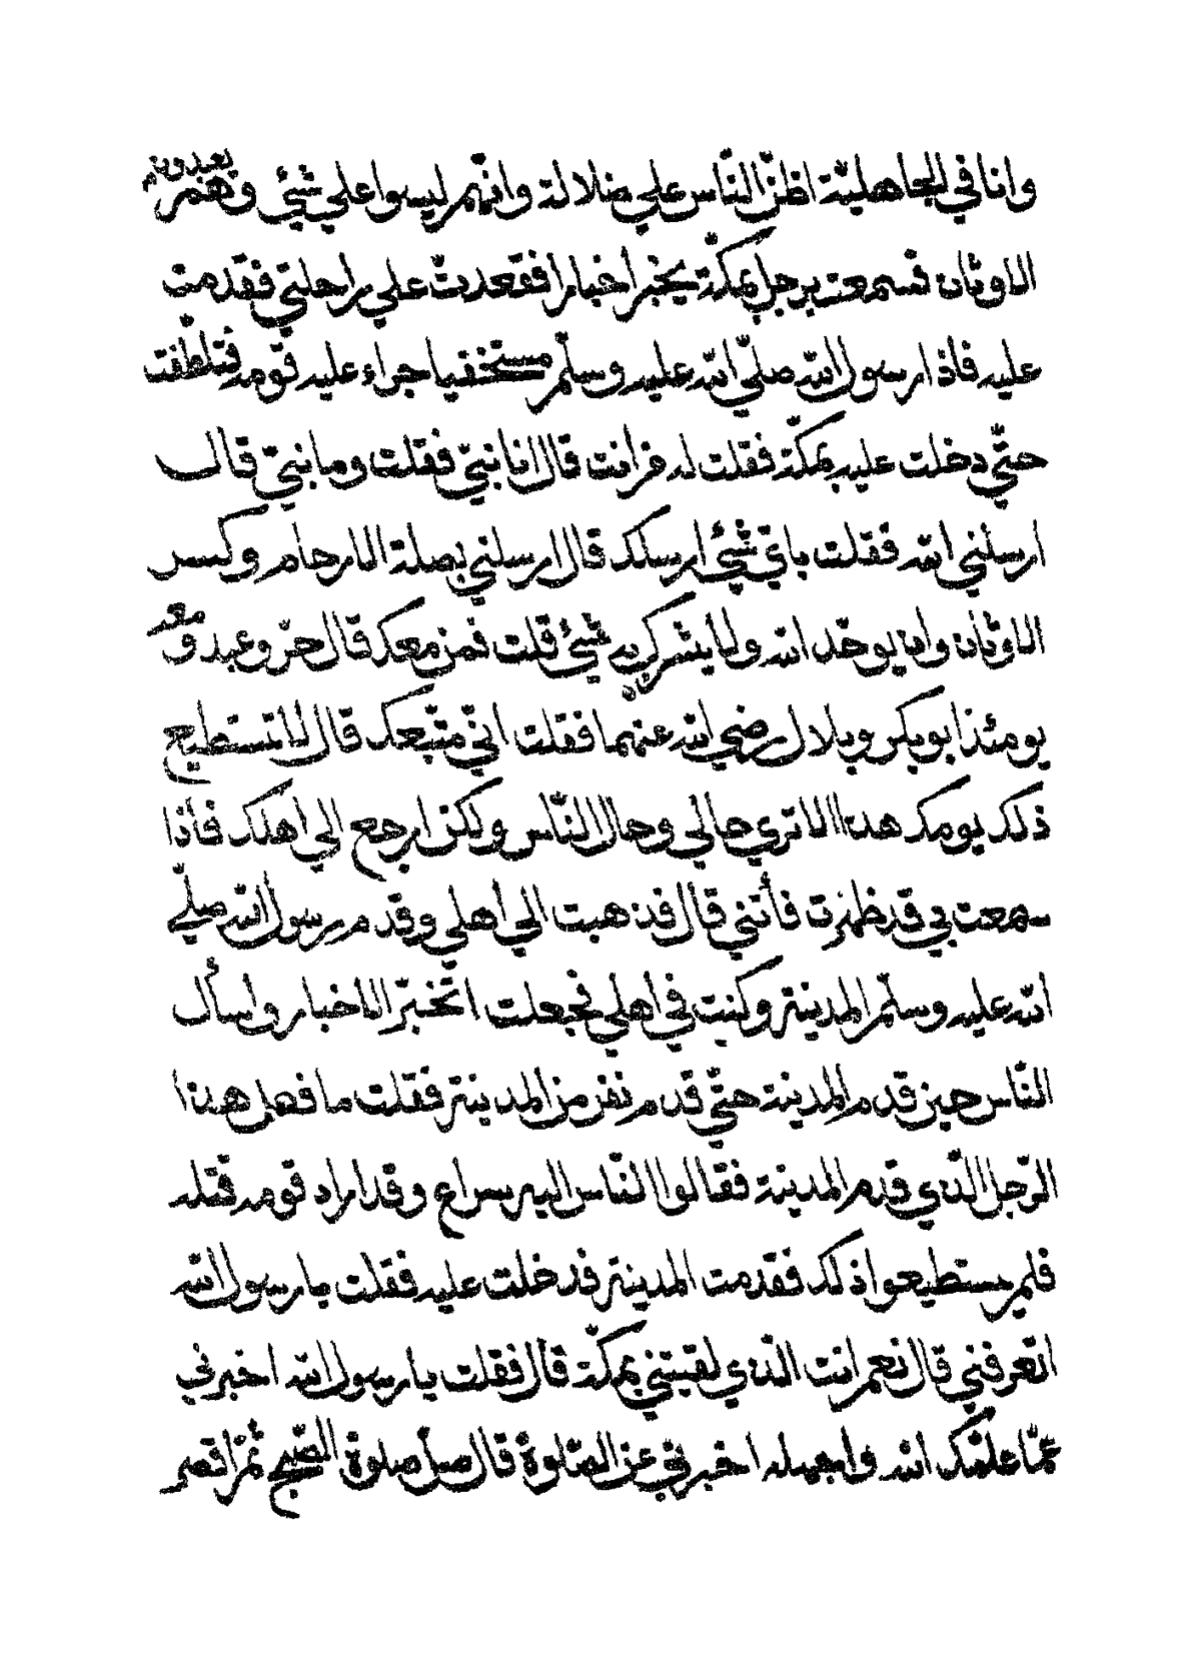 وانا في الجاهلية اظن الناس على ضلالة وانهم ليسوا علي شيئ وهم يعبدون
الاوثان فسمعت برجل بمكة يخبر اخبارا فقعدت علي راحلتي فقدمت
عليه فاذا رسول الله صلي الله عليه وسلم مستخفيا جراء عليه قومه فتلطفت
حتي دخلت عليه بمكة فقلت له من انت قال انا نبي فقلت وما نبي قال
ارسلني الله فقلت باي شيئ ارسلك قال ارسلني بصلة الارحام وكسر
الاوثان وان يوحد الله ولا يشرك به شيئ قلت فمن معك قال حر وعبد ومعه
يومئذ ابو بكر وبلال رضي الله عنهما فقلت اني متبعك قال لا تستطيع
ذلك يومك هذا الا تري حالي وحال الناس ولكن ارجع الي اهلك فاذا
سمعت بي قد ظهرت فأتني قال فذهبت الي اهلي وقدم رسول الله صلي
الله عليه وسلم المدينة وكنت في اهلي فجعلت اتخبر الاخبار واسأل
الناس حين قدم المدينة حتي قدم نفر من المدينة فقلت ما فعل هذا
الرجل الذي قدم المدينة فقالوا الناس اليه سراع وقد اراد قومه قتله
فلم يستطيعوا ذلك فقدمت المدينة فدخلت عليه فقلت يا رسول الله
اتعرفني قال نعم انت الذي لقيتني بمكة قال فقلت يا رسول الله اخبرني
عما علمك الله واجهله اخبرني عن الصلوة قال صل صلوة الصبح ثم اقصر